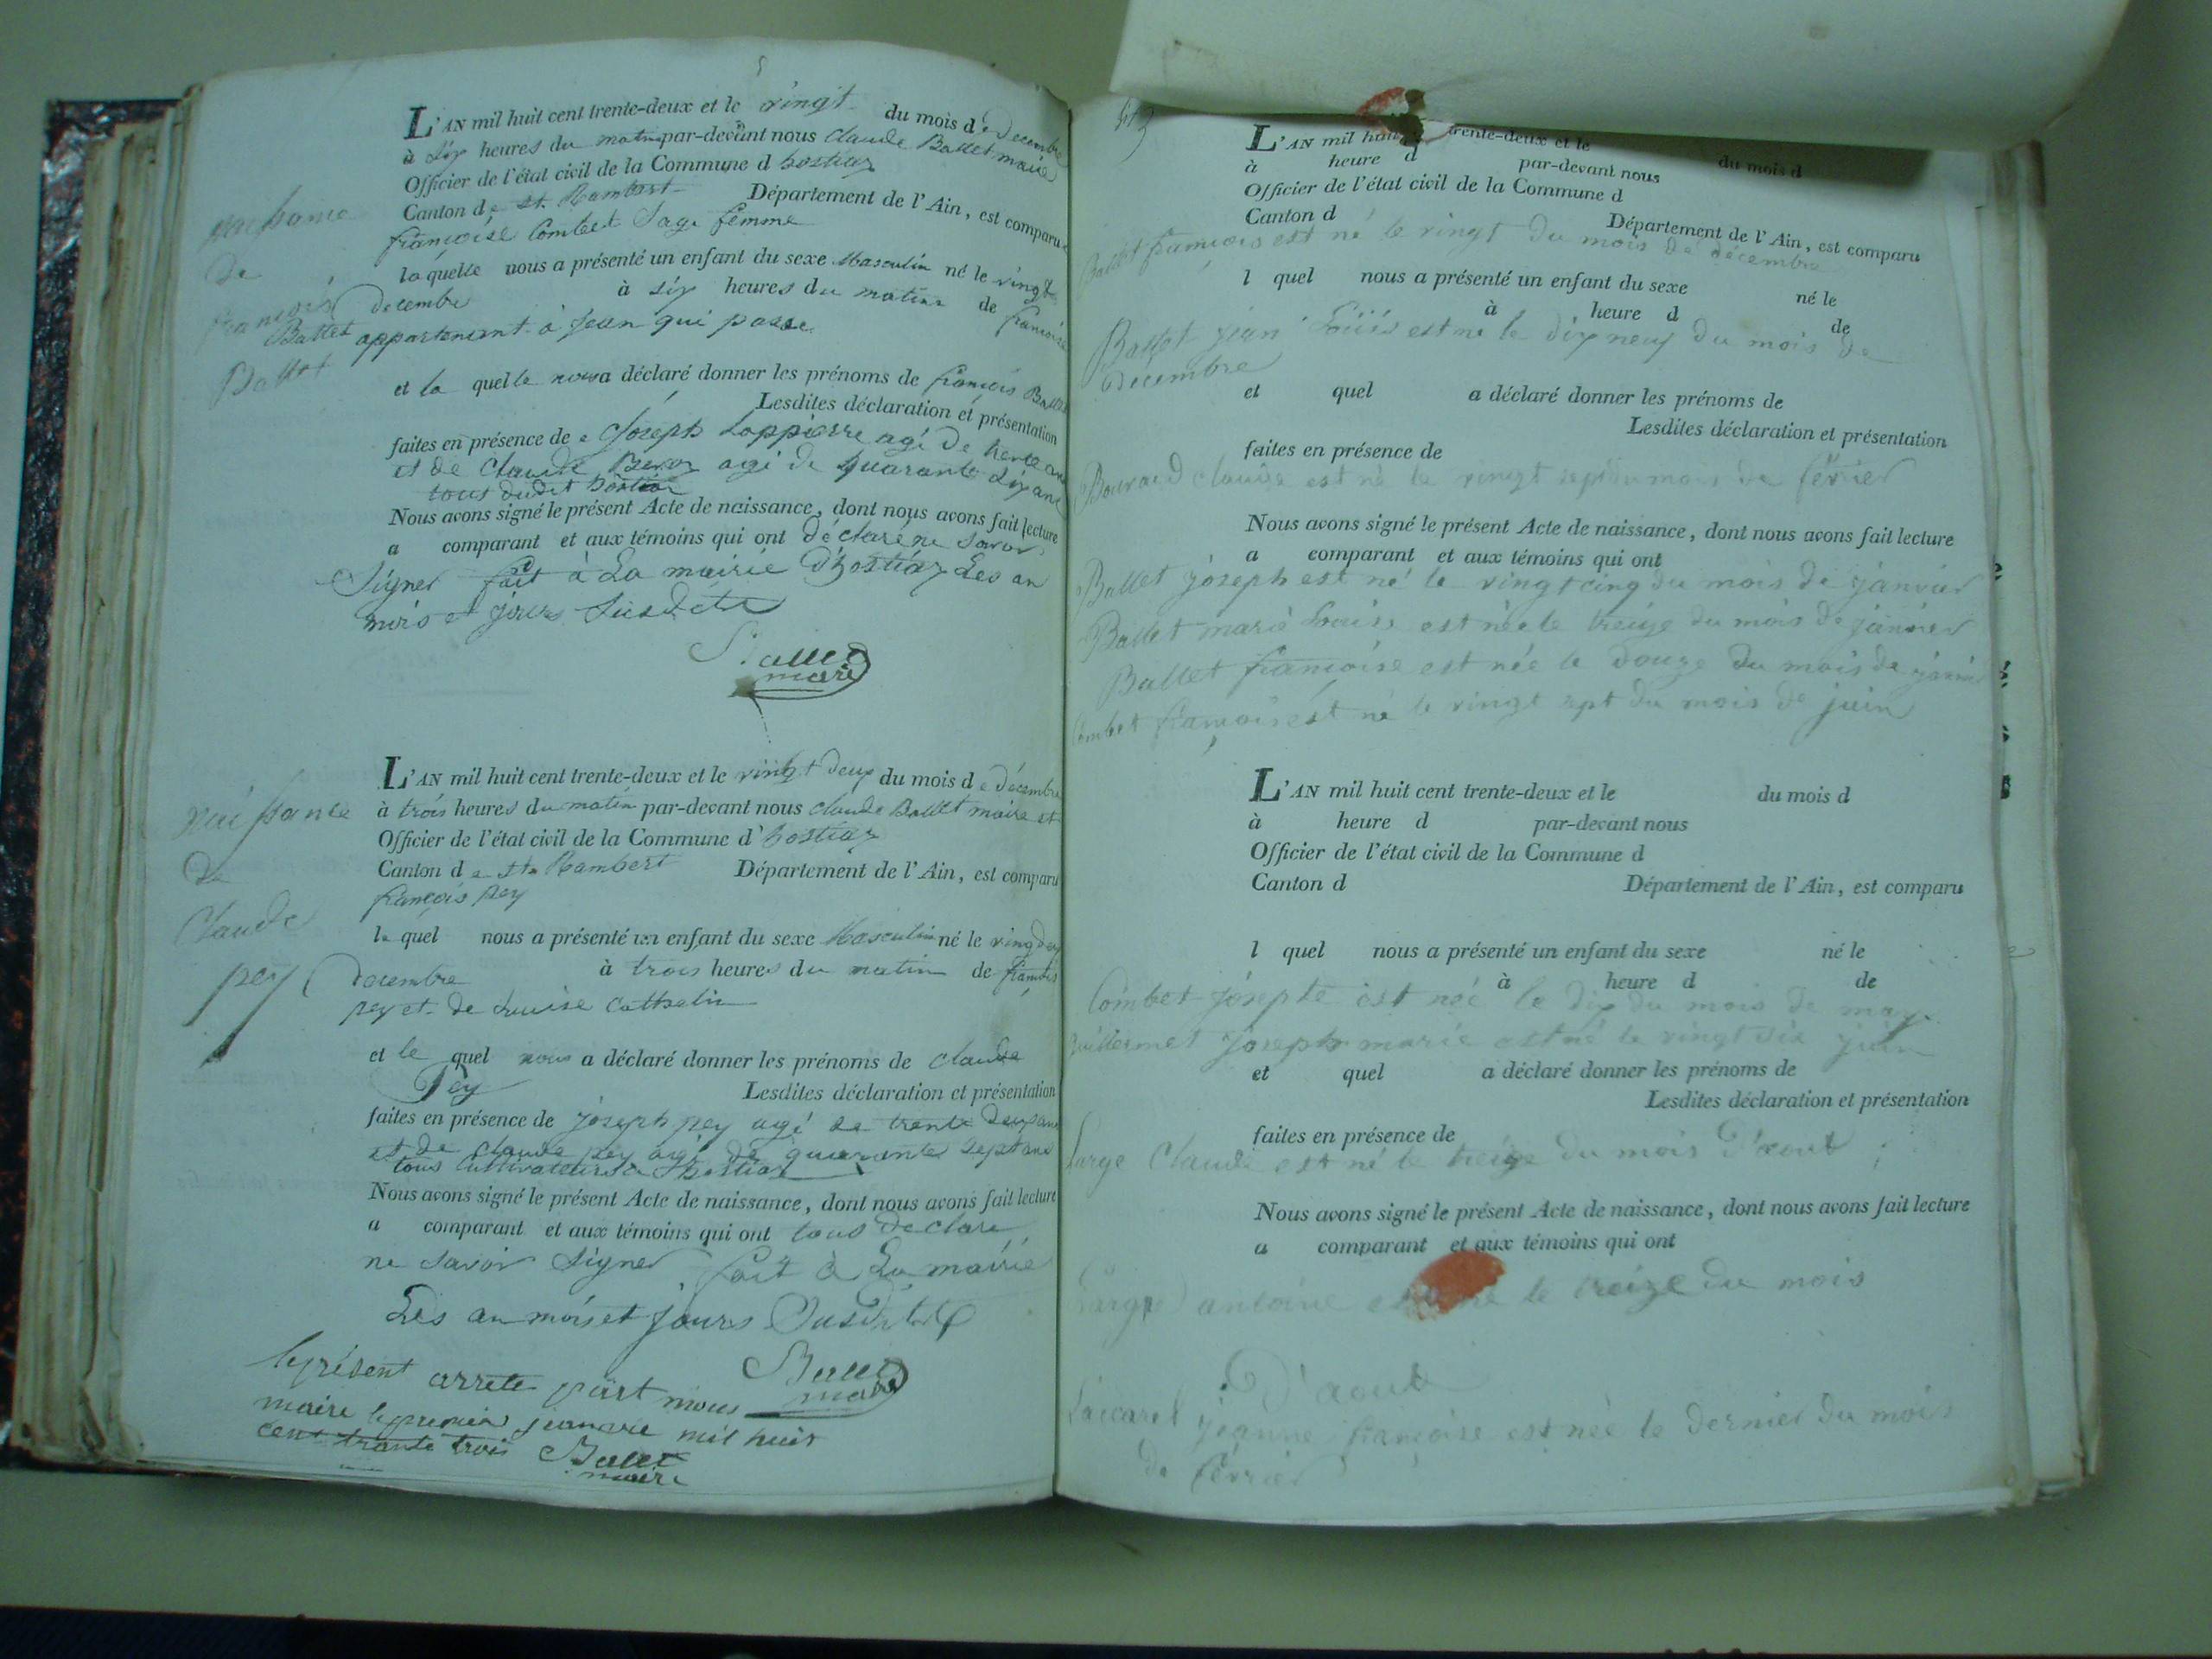 L'AN mil huit cent trente-deux et le vingt du mois de decembre
à six heures du matin par-devant nous Claude Ballet maire
Officier de l'état civil de la Commune d hostiaz
Canton de st. Rambert Département de l'Ain, est comparue
françoise Combet Sage femme
naissance
de
françois
Ballet
laquelle nous a présenté un enfant du sexe Masculin né le vingt
decembre à six heures du matin de françoise
Ballet appartenant à Jean qui passe
et la quelle nous a déclaré donner les prénoms de françois Ballet
Lesdites déclaration et présentation
faites en présence de Joseph agé de trente ans
et de Claude agé de quarante six ans
tous dudit hostiaz
Nous avons signé le présent Acte de naissance, dont nous avons fait lecture
a comparant et aux témoins qui ont déclaré ne savoir
Signer fait à La mairie D'hostiaz Les an
mois et jours Susdits
Ballet
maire
L'AN mil huit cent trente-deux et le vingt deux du mois de décembre
à trois heures du matin par-devant nous Claude Ballet maire et
Officier de l'état civil de la Commune d'hostiaz
Canton de st. Rambert Département de l'Ain, est comparu
françois pey
naissance
de
Claude
pey
le quel nous a présenté un enfant du sexe Masculin né le vingt deux
decembre à trois heures du matin de françois
pey et de Louise Cathelin
et le quel nous a déclaré donner les prénoms de claude
Pey Lesdites déclaration et présentation
faites en présence de joseph pey agé de trente deux ans
et de claude pey agé de quarante sept ans
tous Cultivateurs à hostiaz
Nous avons signé le présent Acte de naissance, dont nous avons fait lecture
a comparant et aux témoins qui ont tous declaré
ne Savoir Signer fait à La mairie
Les an mois et Jours Susdits
Ballet
maire
le présent arrete part nous
maire le premier janvie mil huit
cent trante trois Ballet
maire
L'AN mil huit trente-deux et le du mois d
à heure d par-devant nous
Officier de l'état civil de la Commune d
Canton d Département de l'Ain, est comparu
Ballet françois est né le vingt du mois de décembre
l quel nous a présenté un enfant du sexe né le
à heure d de
Ballet jean Loüis est né le dix neuf du mois de
décembre
et quel a déclaré donner les prénoms de
Lesdites déclaration et présentation
faites en présence de
claude est né le vingt sept du mois de février
Nous avons signé le présent Acte de naissance, dont nous avons fait lecture
a comparant et aux témoins qui ont
Ballet joseph est né le vingt cinq du mois de janvier
Ballet marie Louise est née le treize du mois de janvier
Ballet françoise est née le douze du mois de janvier
Combet françois est né le vingt sept du mois de juin
L'AN mil huit cent trente-deux et le du mois d
à heure d par-devant nous
Officier de l'état civil de la Commune d
Canton d Département de l'Ain, est comparu
l quel nous a présenté un enfant du sexe né le
à heure d de
Combet josepte est née le dix du mois de may
guillermet joseph marie est né le vingt six juin
et quel a déclaré donner les prénoms de
Lesdites déclaration et présentation
faites en présence de
Large Claude est né le treize du mois D'aout
Nous avons signé le présent Acte de naissance, dont nous avons fait lecture
a comparant et aux témoins qui ont
Large antoine est né le treize du mois
D'aout
jeanne françoise est née le dernier du mois
de février